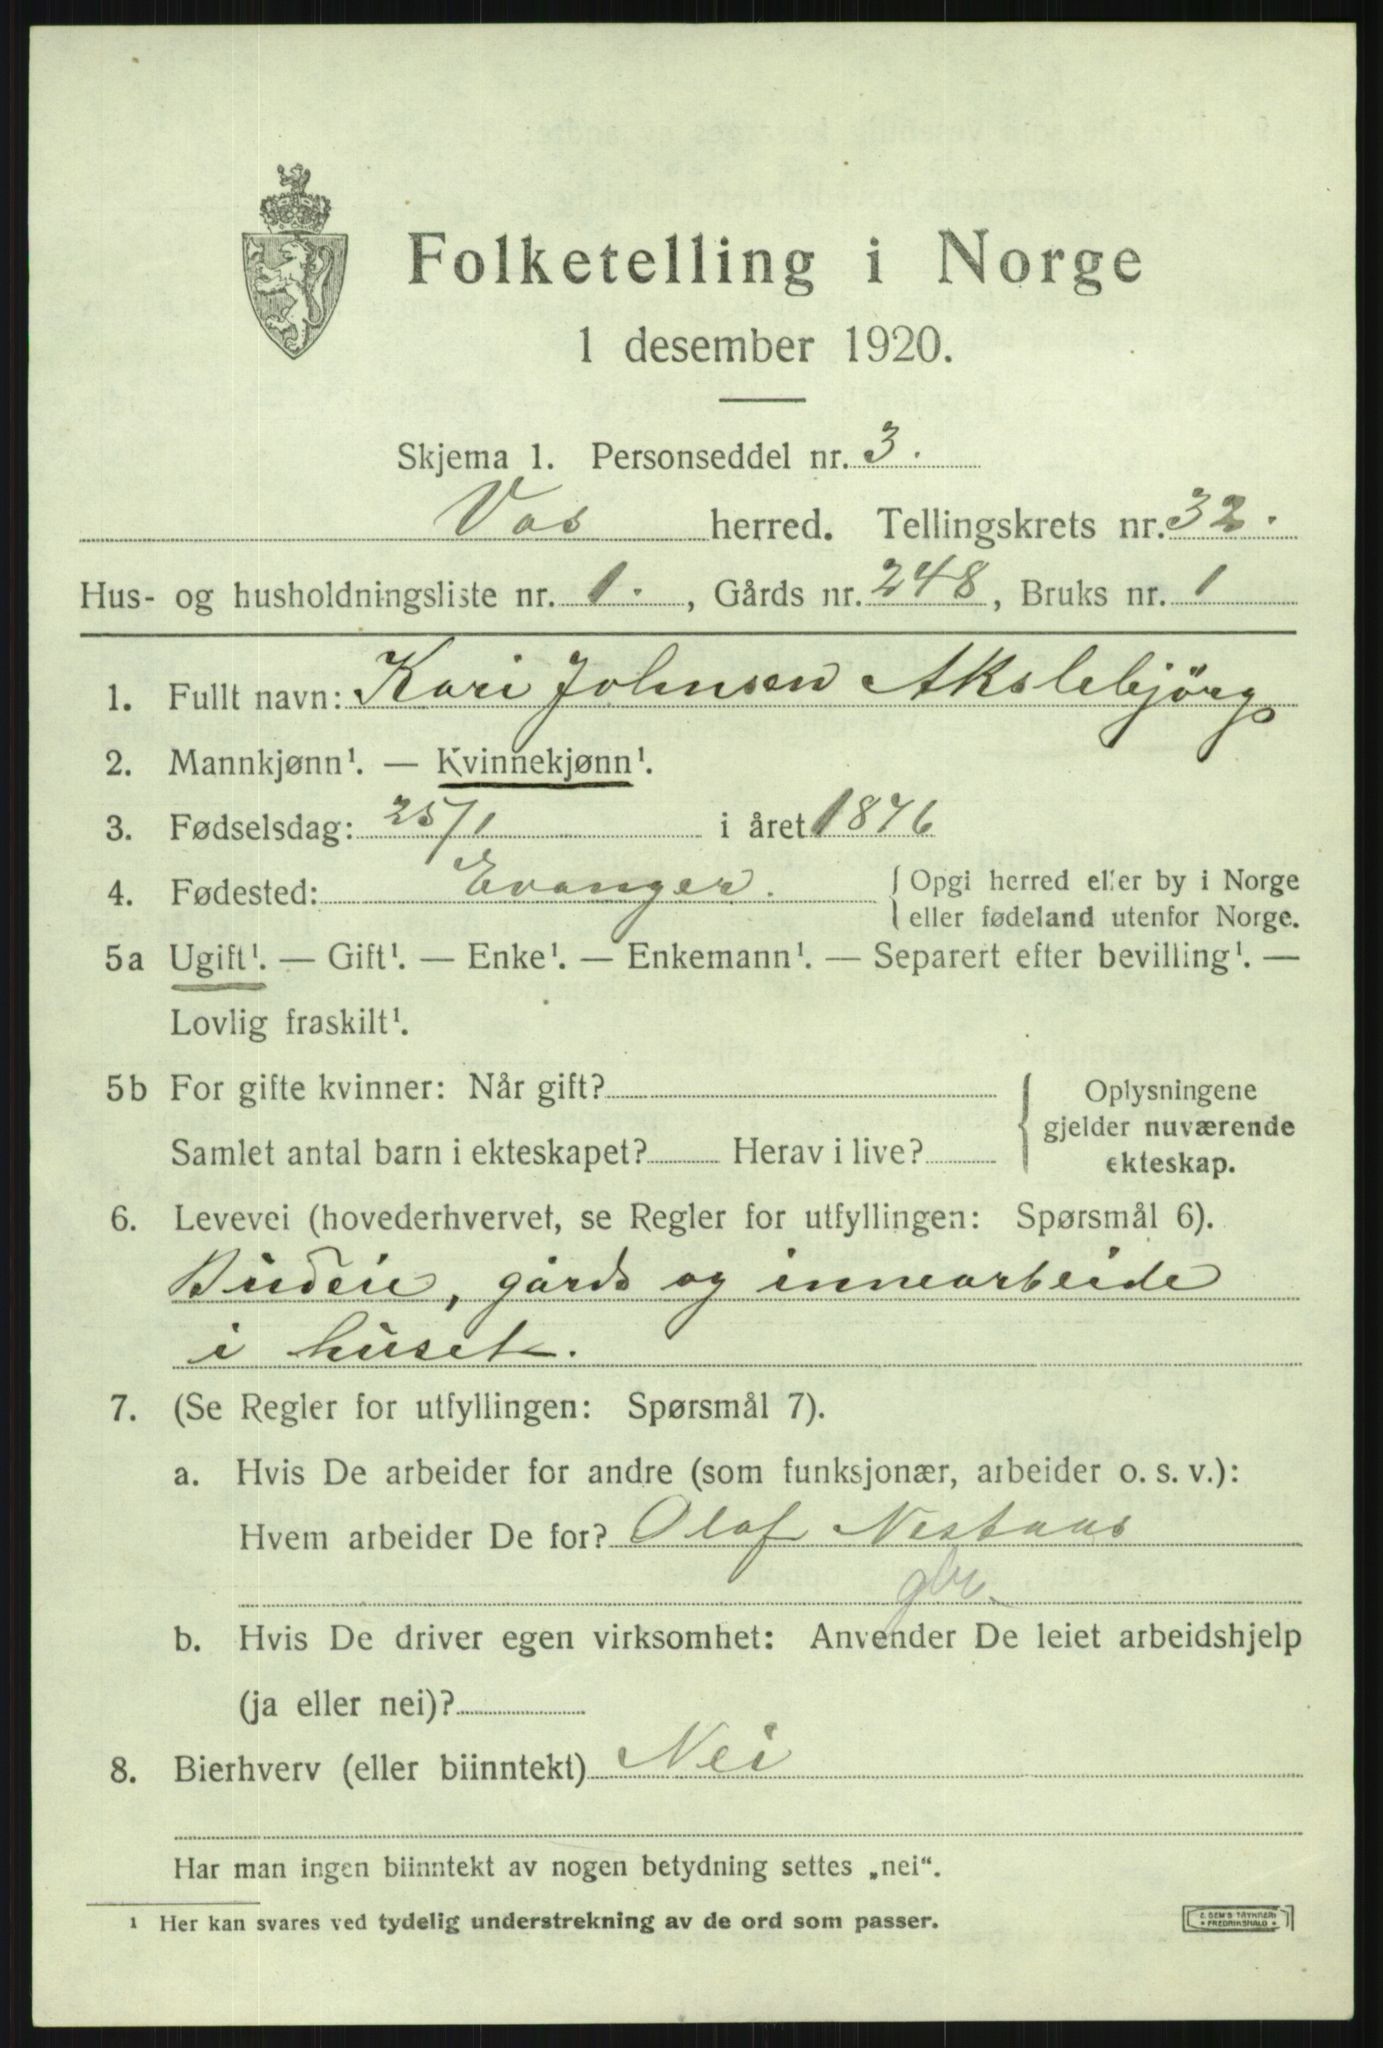 Folketelling i Norge
1 desember 1920.
Skjema 1. Personseddel nr. 3.
Vos herred. Tellingskrets nr. 32.
Hus- og husholdningsliste nr. 1. , Gårds nr. 248, Bruks nr. 1
1. Fullt navn: Kari Johnsen Akslebjörg
2. Mannkjønn¹. — Kvinnekjønn¹.
3. Fødselsdag: 25/1 i året 1876
4. Fødested: Evanger. { Opgi herred eller by i Norge
eller fødeland utenfor Norge.
5a Ugift¹. — Gift¹. — Enke¹. — Enkemann¹. — Separert efter bevilling¹. —
Lovlig fraskilt¹.
5b For gifte kvinner: Når gift?
Samlet antal barn i ekteskapet? Herav i live?
{ Oplysningene
gjelder nuværende
ekteskap.
6. Levevei (hovederhvervet, se Regler for utfyllingen: Spørsmål 6).
Budeie, gårds og innearbeide
i huset.
7. (Se Regler for utfyllingen: Spørsmål 7).
a. Hvis De arbeider for andre (som funksjonær, arbeider o. s. v.):
Hvem arbeider De for? Olaf Nestaas
gbr.
b. Hvis De driver egen virksomhet: Anvender De leiet arbeidshjelp
(ja eller nei)?
8. Bierhverv (eller biinntekt) Nei
Har man ingen biinntekt av nogen betydning settes „nei“.
¹ Her kan svares ved tydelig understrekning av de ord som passer.
E. SEM'S TRYKKERI
FREDRIKSHALD